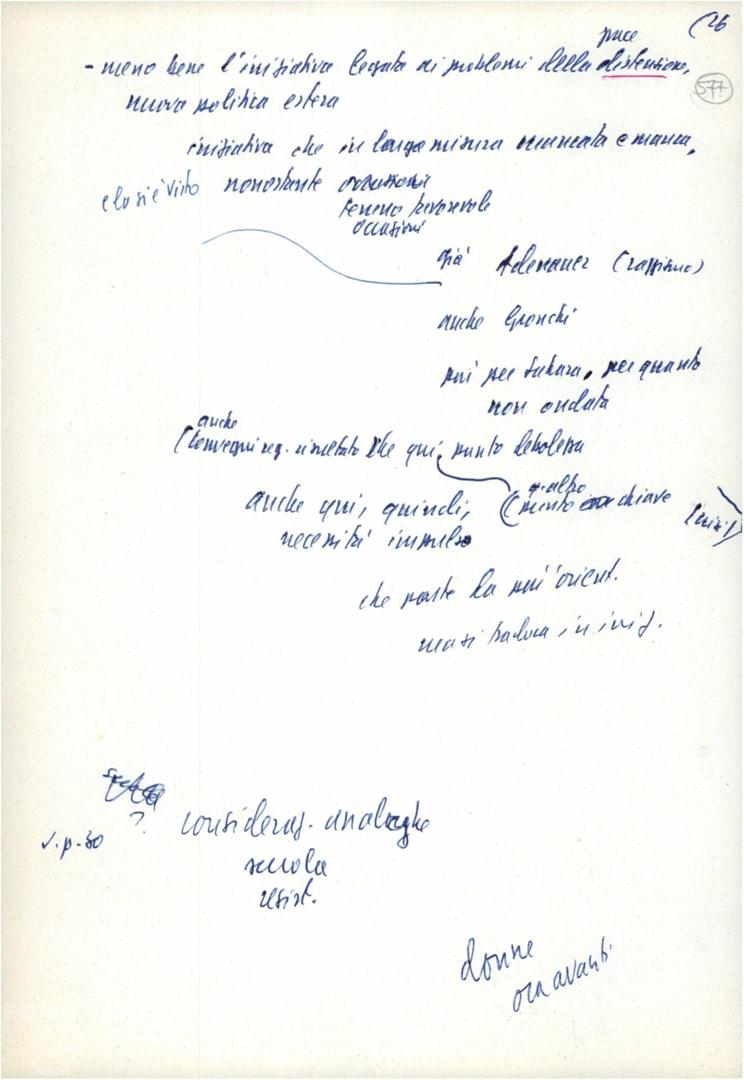 (26
577
pace
- meno bene l'iniziativa legata ai problemi della distensione,
nuova politica estera
iniziativa che in larga misura mancata e manca,
e lo si è visto nonostante occasioni
terreno favorevole
occasioni
già Adenauer (razzismo)
anche Gronchi
poi per Sahara, per quanto
non ondata
anche
(Convegni reg. risultato che qui punto debolezza
p. altro
anche qui, quindi, (punto chiave
necessità impulso
che parte da più orient.
ma si traduca in iniz.
?
v. p. 30
consideraz. analoghe
scuola
resist.
donne
ora avanti